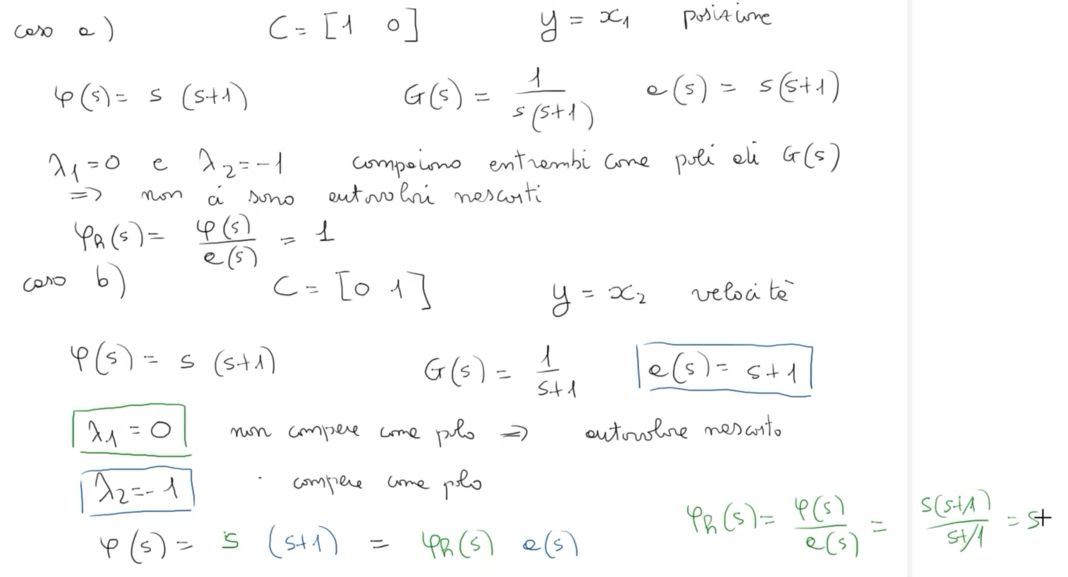 caso a) C = [1 0] y = x₁ posizione
φ(s) = s (s+1) G(s) = 1/(s(s+1)) a(s) = s(s+1)
λ₁=0 e λ₂=-1 compaiono entrambi come poli di G(s)
=> non ci sono autovalori nascosti
φh(s) = φ(s)/a(s) = 1
caso b) C = [0 1] y = x₂ velocità
φ(s) = s (s+1) G(s) = 1/(s+1) a(s) = s+1
λ₁ = 0 non compare come polo => autovalore nascosto
λ₂=-1 compare come polo
φ(s) = s (s+1) = φh(s) a(s) φh(s) = φ(s)/a(s) = s(s+1)/(s+1) = s